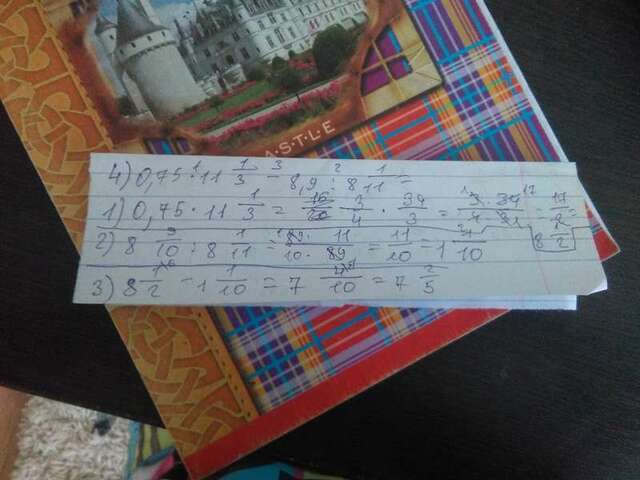 A•S•T•L•E
4) 0,75 · 11 1/3 - 8,9 : 8 1/11 =
1) 0,75 · 11 1/3 = 3/4 · 34/3 = 3 · 34 = 17/2 = 8 1/2
2) 8 9/10 : 8 1/11 = 89 · 11 / 10 · 89 = 11/10 = 1 1/10
3) 8 1/2 - 1 1/10 = 7 4/10 = 7 2/5